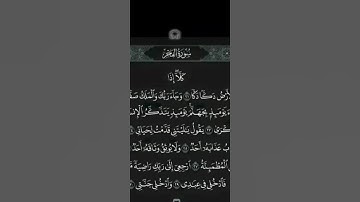 سُورَةُ الفَجْرِ
كَلَّا إِذَا
الْأَرْضُ دَكًّا دَكًّا ۝ وَجَاءَ رَبُّكَ وَالْمَلَكُ صَفًّا
يَوْمَئِذٍ بِجَهَنَّمَ يَوْمَئِذٍ يَتَذَكَّرُ الْإِنسَ
ذِّكْرَىٰ ۝ يَقُولُ يَا لَيْتَنِي قَدَّمْتُ لِحَيَاتِي
ُ عَذَابَهُ أَحَدٌ ۝ وَلَا يُوثِقُ وَثَاقَهُ أَحَدٌ
الْمُطْمَئِنَّةُ ۝ ارْجِعِي إِلَىٰ رَبِّكِ رَاضِيَةً
فَادْخُلِي فِي عِبَادِي ۝ وَادْخُلِي جَنَّتِي